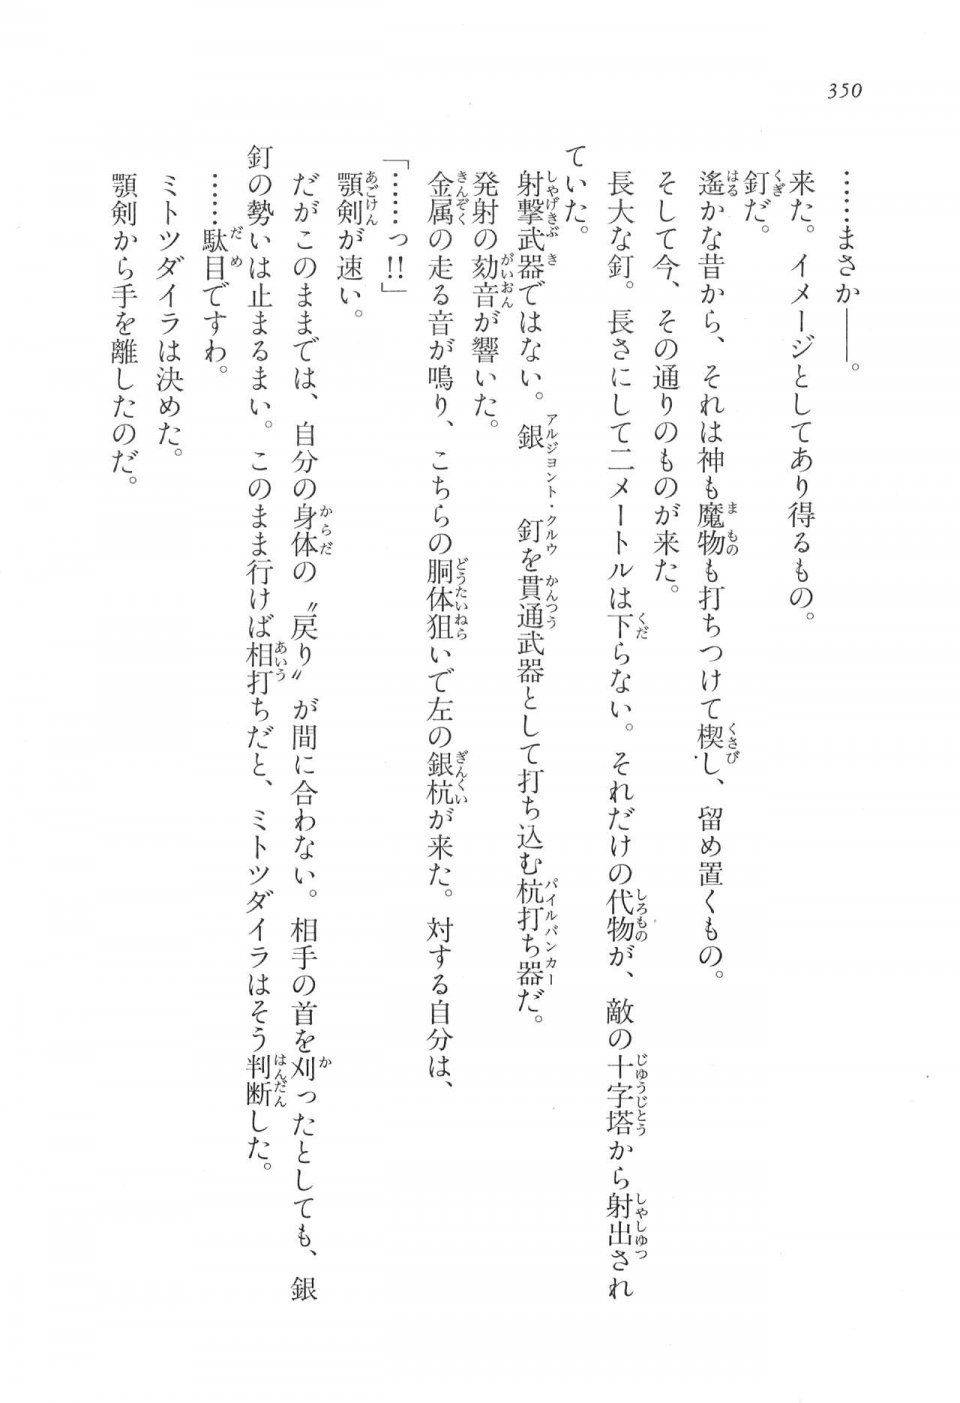 350
……まさか――。
来た。イメージとしてあり得るもの。
釘だ。
遙かな昔から、それは神も魔物も打ちつけて楔し、留め置くもの。
そして今、その通りのものが来た。
長大な釘。長さにして二メートルは下らない。それだけの代物が、敵の十字塔から射出され
ていた。
射撃武器ではない。銀釘を貫通武器として打ち込む杭打ち器だ。
発射の劾音が響いた。
金属の走る音が鳴り、こちらの胴体狙いで左の銀杭が来た。対する自分は、
「……っ!!」
顎剣が速い。
だがこのままでは、自分の身体の〝戻り〟が間に合わない。相手の首を刈ったとしても、銀
釘の勢いは止まるまい。このまま行けば相打ちだと、ミトツダイラはそう判断した。
……駄目ですわ。
ミトツダイラは決めた。
顎剣から手を離したのだ。